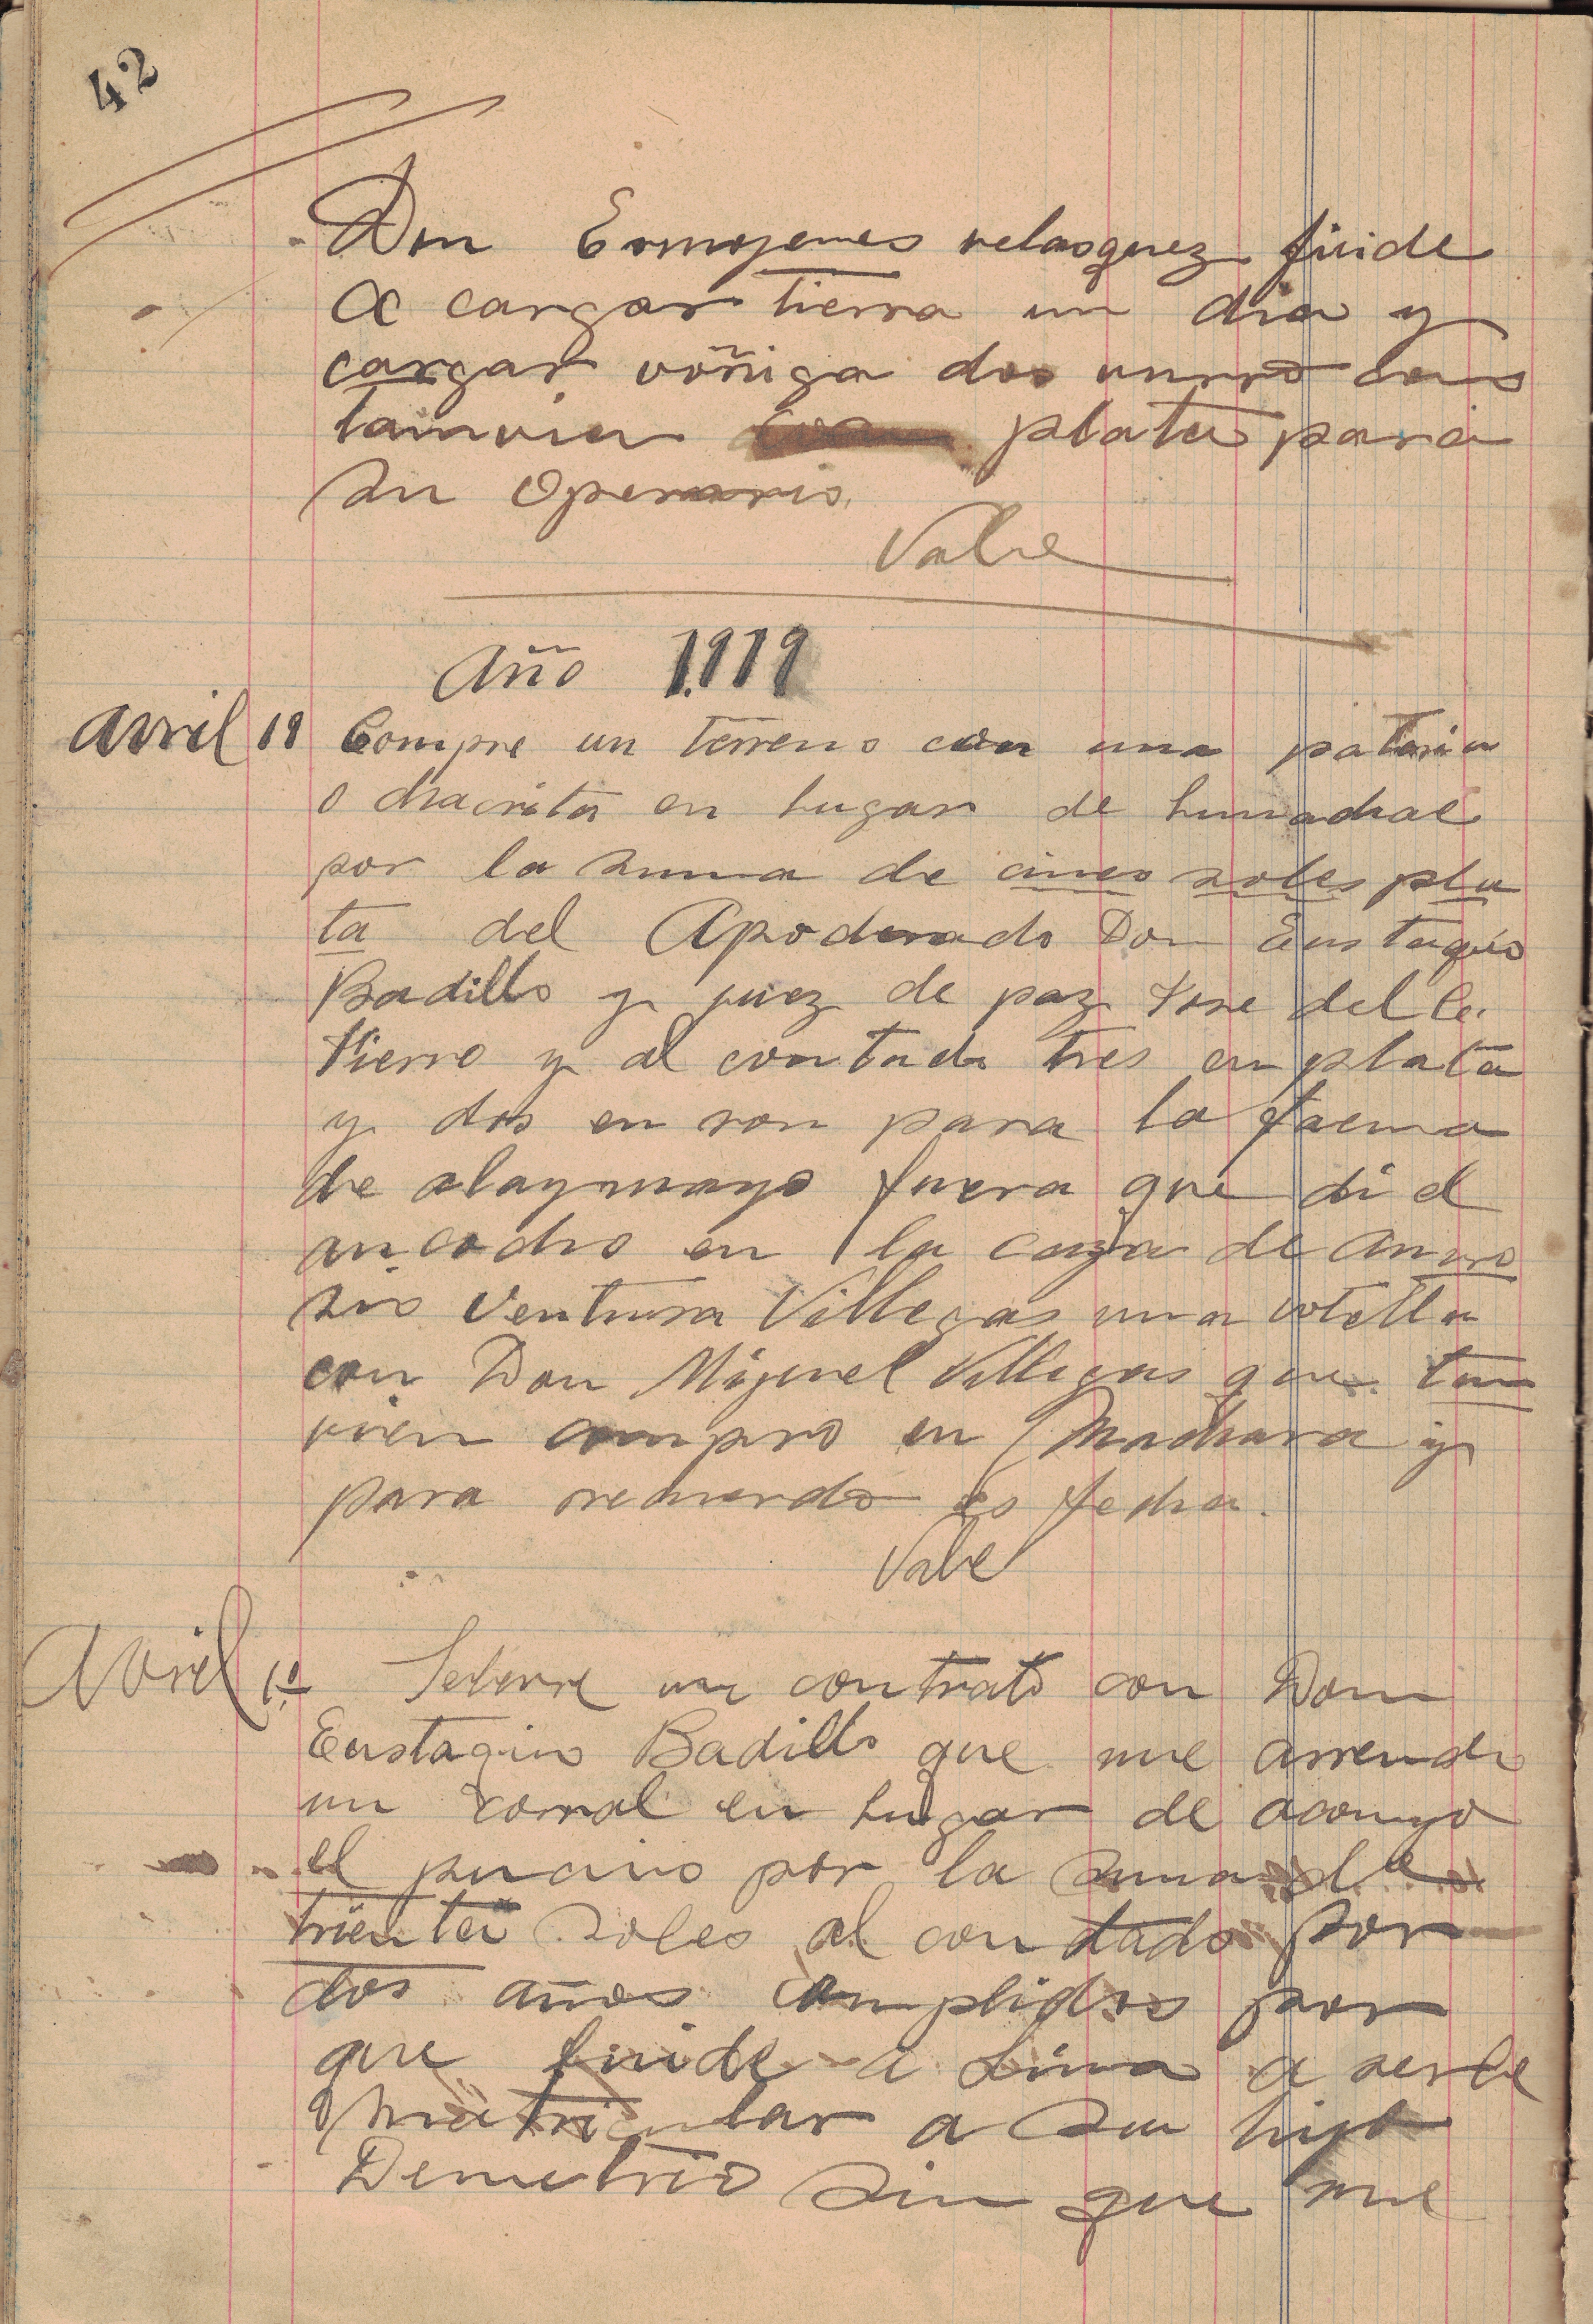 42
Don Ermojenes velasquez fuide
a cargar tierra un dia y
cargar voñiga dos vurro cons
tamvien plata para
su Operario.
Vale
Año 1919
Avril 18 Compre un terreno con una
o chacrita en lugar de
por la suma de cinco soles pla
ta del Apoderado Don Eustaquio
Badillo y juez de paz Jose del C.
Fierro y al contado tres en plata
y dos en ron para la faena
de alaymayo fuera que di el
en la caza de Amvro
sio Ventura Villegas una votella
con Don Miguel Villegas que tan
vien compro en Machara y
para recuerdo es fecha.
Vale
Avril 19 Selevre un contrato con Don
Eustaquio Badillo que me arrendo
un corral en lugar de acomyo
el pucino por la suma de
trienta soles al contado por
dos años complidos por
que fuide a Lima a serle
matricular a su hijo
Demetrio sin que me